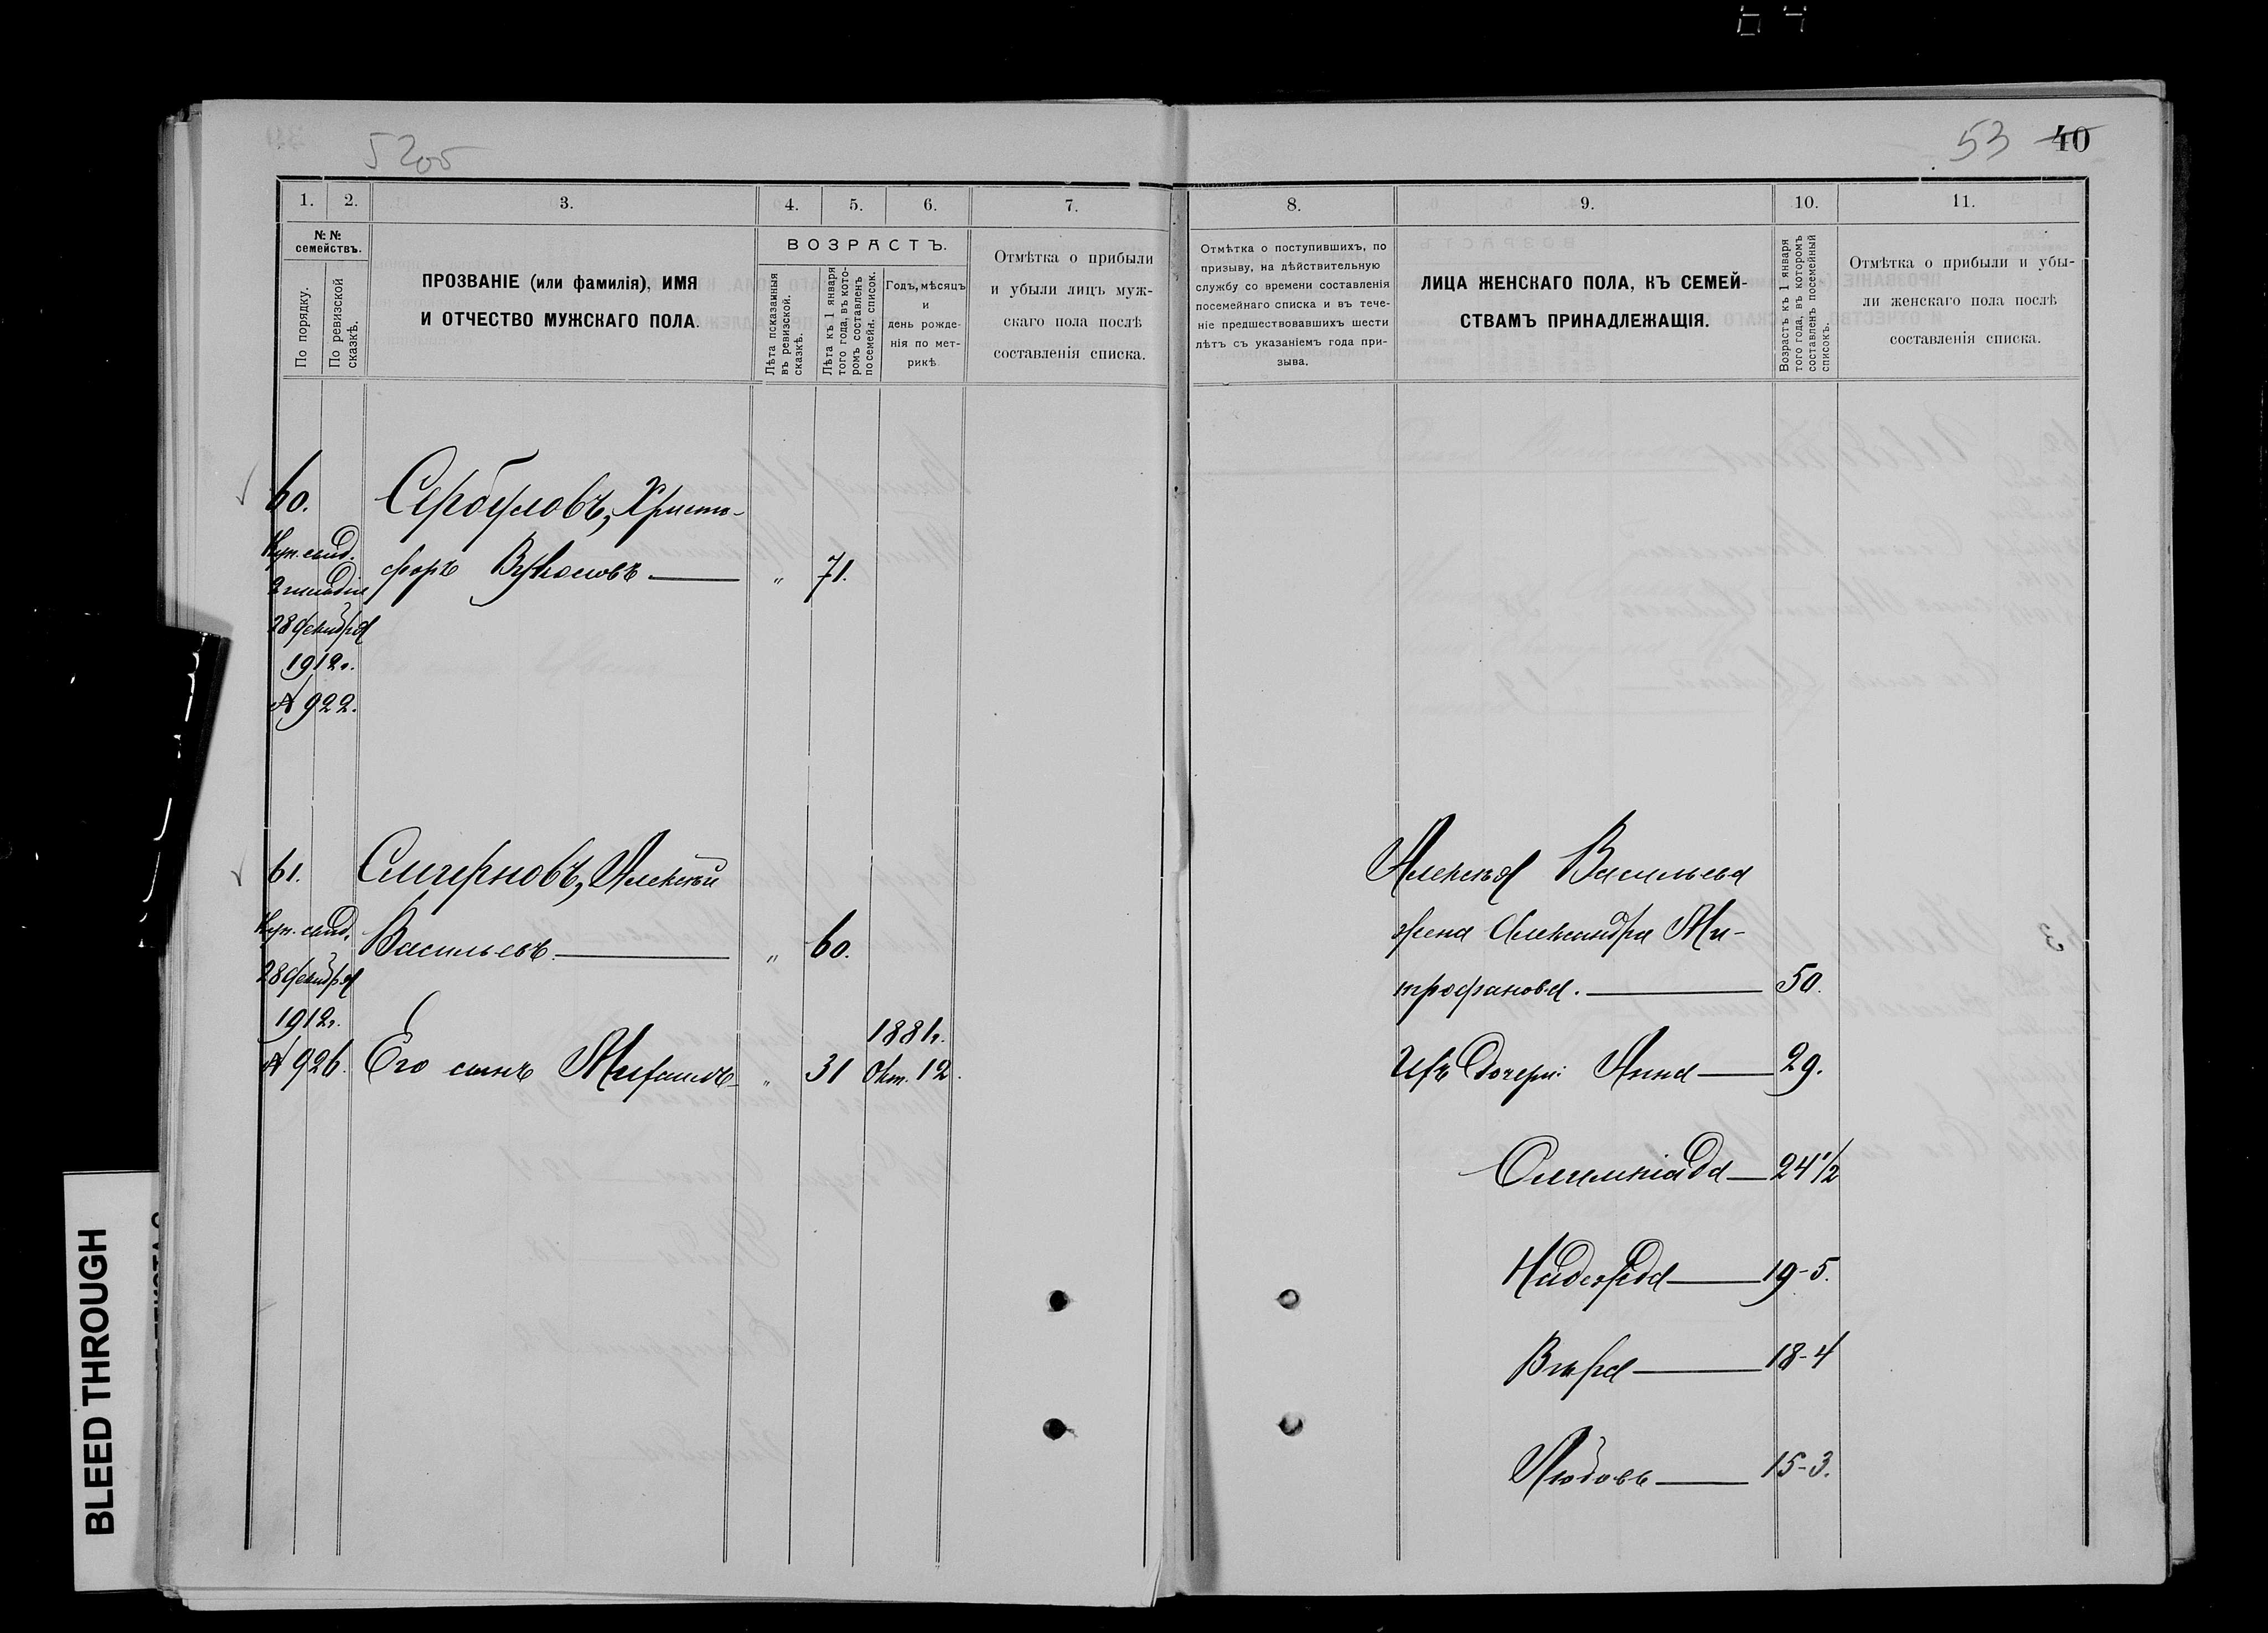 5205
53 40
1. 2. 3. 4. 5. 6. 7.
№№ семействъ.
По порядку.
По ревизской сказкѣ.
ПРОЗВАНІЕ (или фамилія), ИМЯ
И ОТЧЕСТВО МУЖСКАГО ПОЛА.
ВОЗРАСТЪ.
Лѣта показанныя
въ ревизской.
сказкѣ.
Лѣта къ 1 января
того года, въ кото-
ромъ составленъ
посемейн. список.
Годъ, мѣсяцъ
и
день рожде-
нія по мет-
рикѣ
Отмѣтка о прибыли
и убыли лицъ муж-
скаго пола послѣ
составленія списка.
60. Сербуловъ, Христо-
Куп. свид.
форъ Вуколовъ — „ 71.
2 гильдіи
28 декабря
1912г.
№ 922.
61. Смирновъ, Алексѣй
Куп. свид.
Васильевъ — „ 60.
28 декабря
1912г.
1881г.
№ 926. Его сынъ Михаилъ „ 31 Окт. 12.
8. 9. 10. 11.
Отмѣтка о поступившихъ, по
призыву, на дѣйствительную
службу со времени составленія
посемейнаго списка и въ тече-
ніе предшествовавшихъ шести
лѣтъ съ указаніемъ года при-
зыва.
ЛИЦА ЖЕНСКАГО ПОЛА, КЪ СЕМЕЙ-
СТВАМЪ ПРИНАДЛЕЖАЩІЯ.
Возрастъ къ 1 января
того года, въ которомъ
составленъ посемейный
списокъ.
Отмѣтка о прибыли и убы-
ли женскаго пола послѣ
составленія списка.
Алексѣя Васильева
жена Александра Ми-
трофанова. — 50.
Ихъ дочери: Анна — 29.
Олимпіада — 24 1/2
Надежда — 19-5.
Вѣра — 18-4
Любовь — 15-3.
BLEED THROUGH